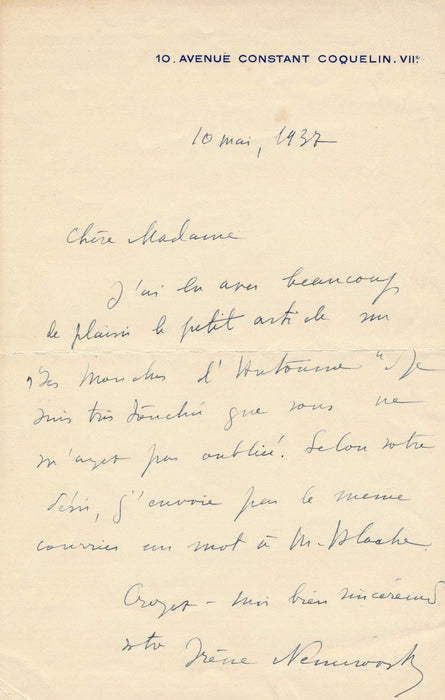 10. AVENUE CONSTANT COQUELIN. VIIe
10 mai, 1937
Chère Madame
J'ai lu avec beaucoup
de plaisir le petit article sur
"Les Mouches d'Automne". Je
suis très touchée que vous ne
m'ayez pas oubliée. Selon votre
désir, j'envoie par le même
courrier un mot à M.
Croyez-moi bien sincèrement
votre Irène Nemirovsky